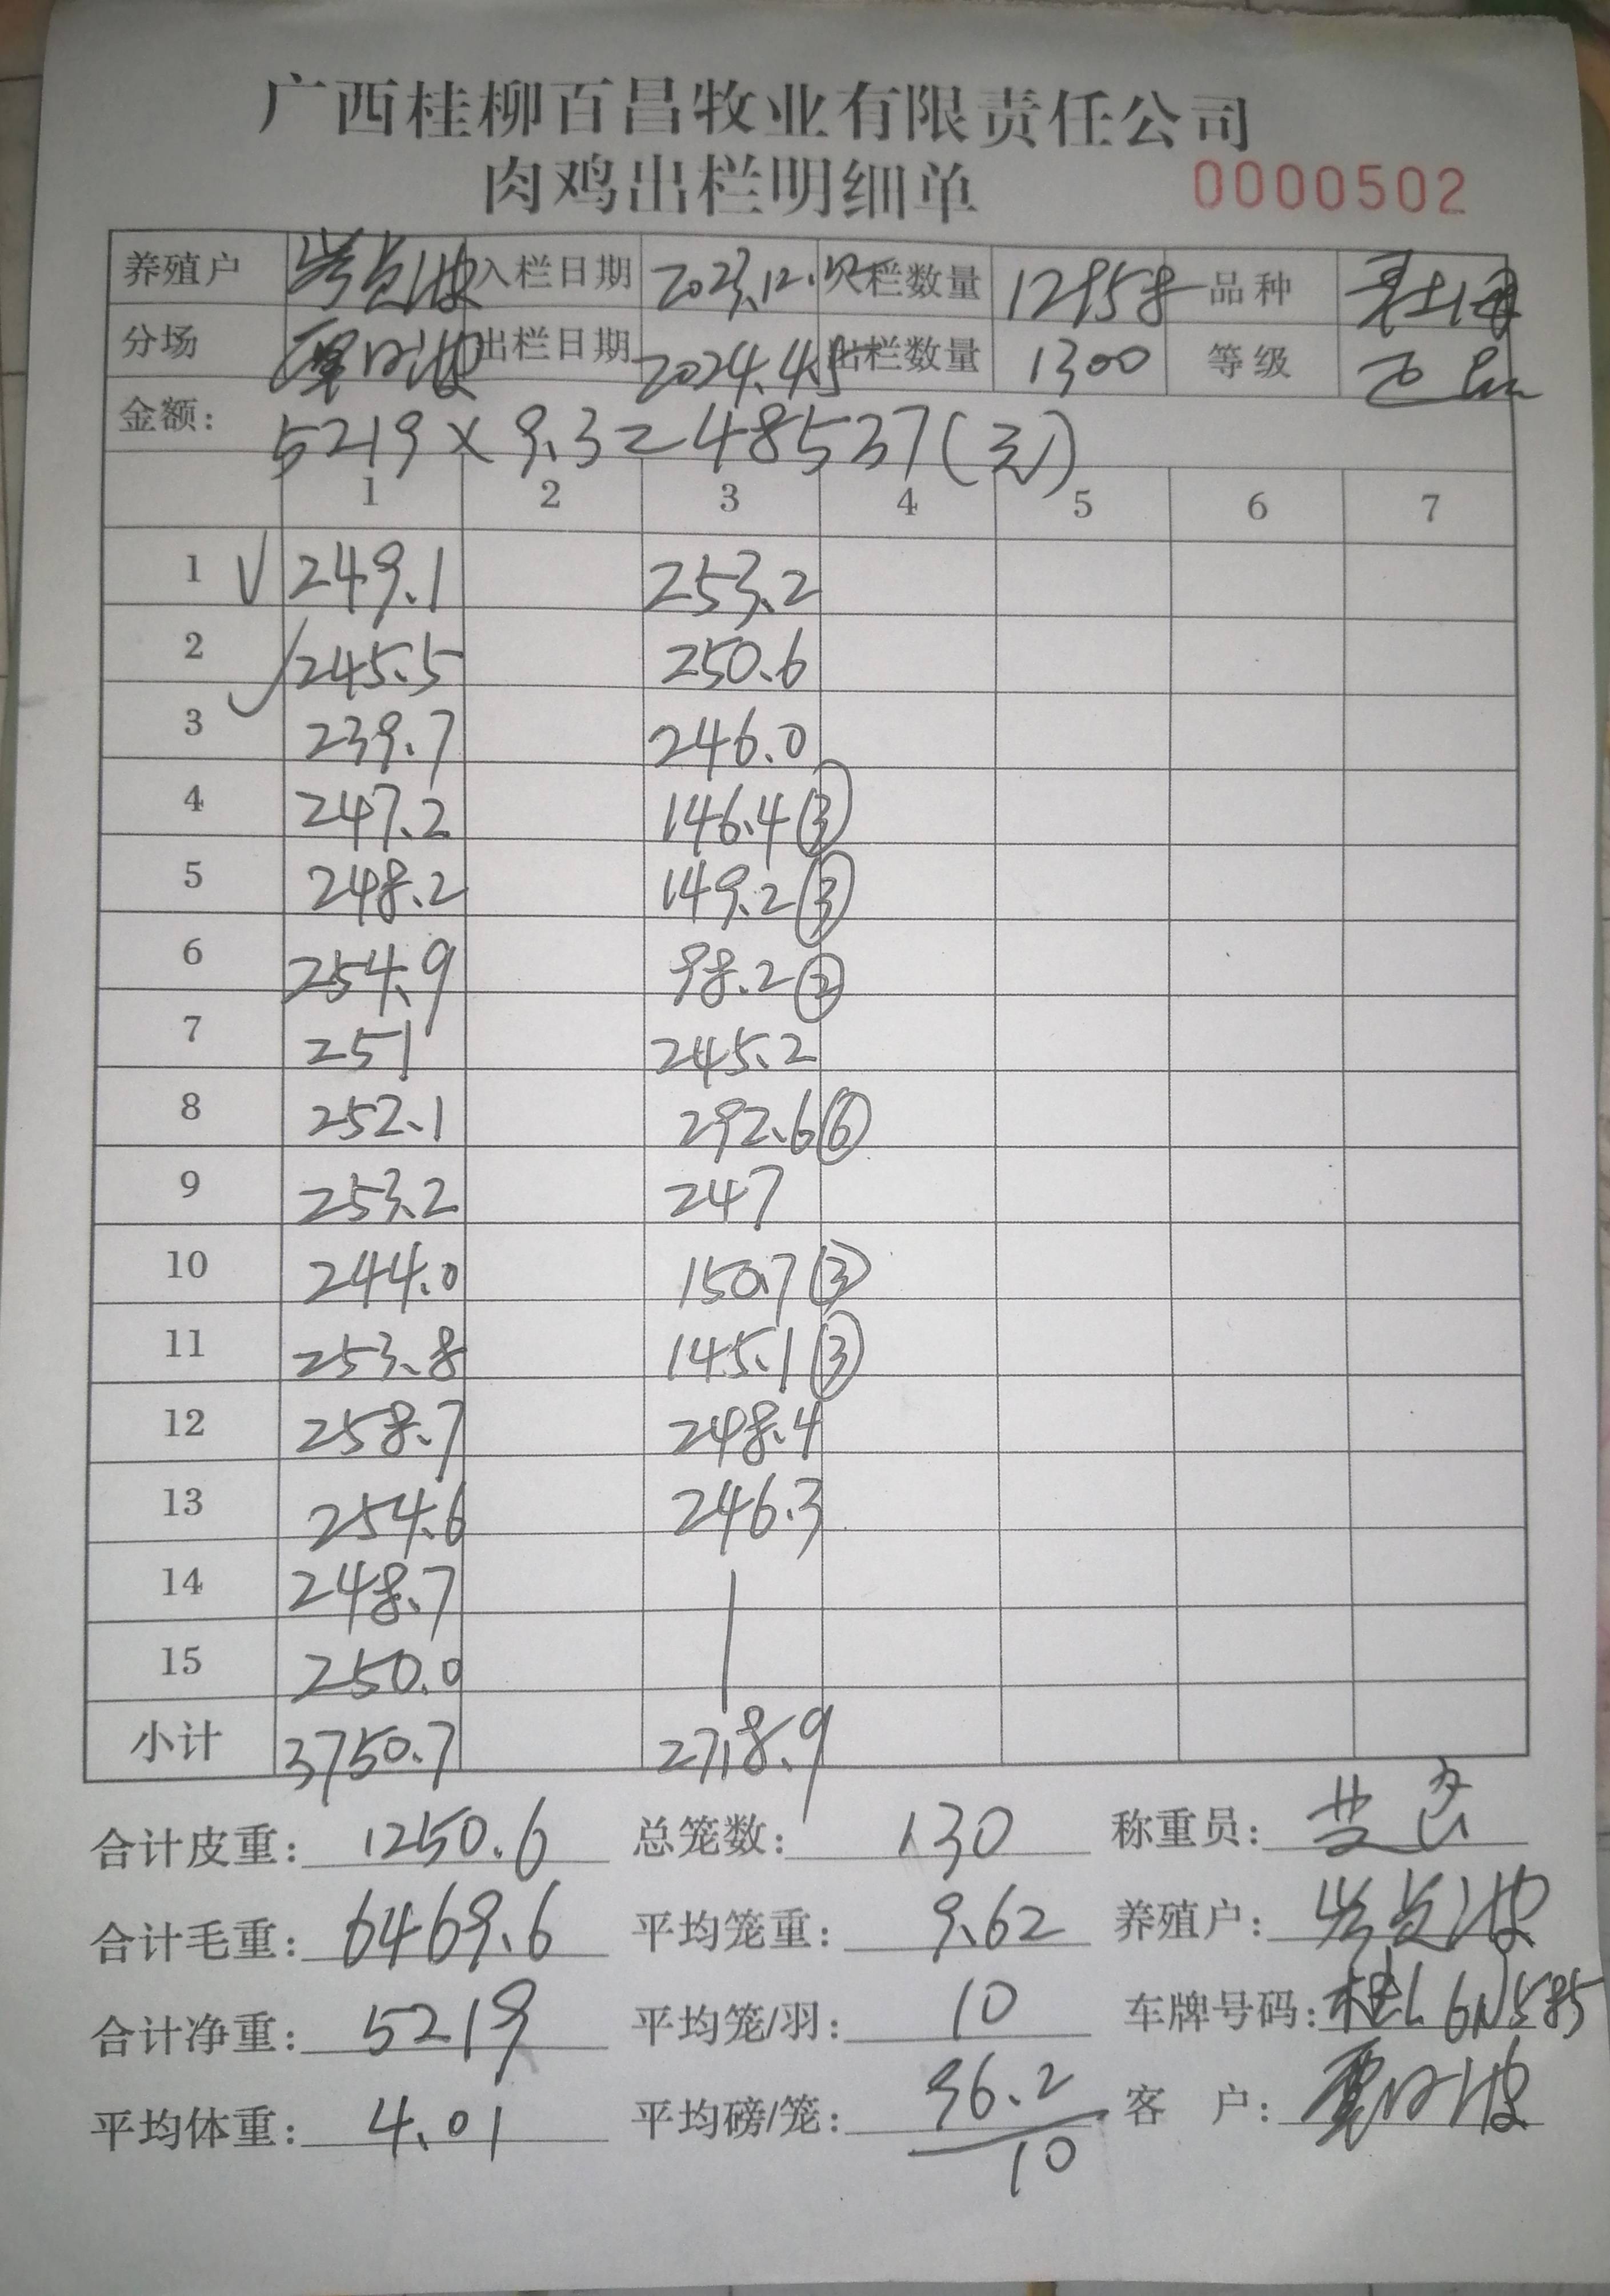 广西桂柳百昌牧业有限责任公司
肉鸡出栏明细单 0000502
养殖户 入栏日期 2023.12. 入栏数量 12958 品种
分场 出栏日期 2024.4.5 出栏数量 1300 等级
金额: 5219×9.3=48537(元)
1 2 3 4 5 6 7
1 ✓ 249.1 253.2
2 ✓ 245.5 250.6
3 239.7 246.0
4 247.2 146.4 ③
5 248.2 149.2 ③
6 254.9 98.2 ②
7 251 245.2
8 252.1 292.6 ⑥
9 253.2 247
10 244.0 150.7 ③
11 253.8 145.1 ③
12 258.7 248.4
13 254.6 246.3
14 248.7
15 250.0
小计 3750.7 2718.9
合计皮重: 1250.6 总笼数: 130 称重员:
合计毛重: 6469.6 平均笼重: 9.62 养殖户:
合计净重: 5219 平均笼/羽: 10 车牌号码: 桂L6N585
平均体重: 4.01 平均磅/笼: 96.2 客 户:
10